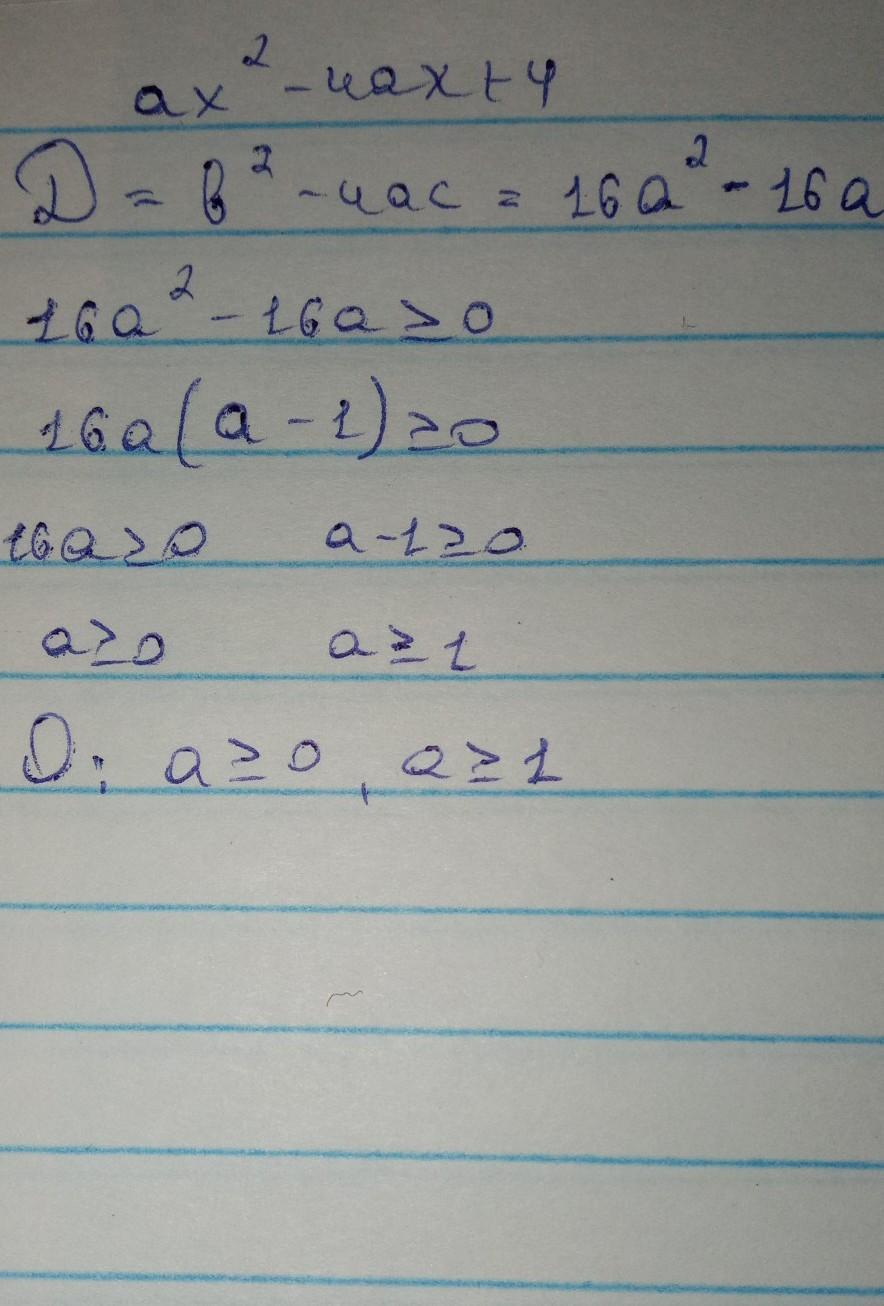 ax² - 4ax + 4
D = b² - 4ac = 16a² - 16a
16a² - 16a ≥ 0
16a(a - 1) ≥ 0
16a ≥ 0 a - 1 ≥ 0
a ≥ 0 a ≥ 1
O: a ≥ 0, a ≥ 1